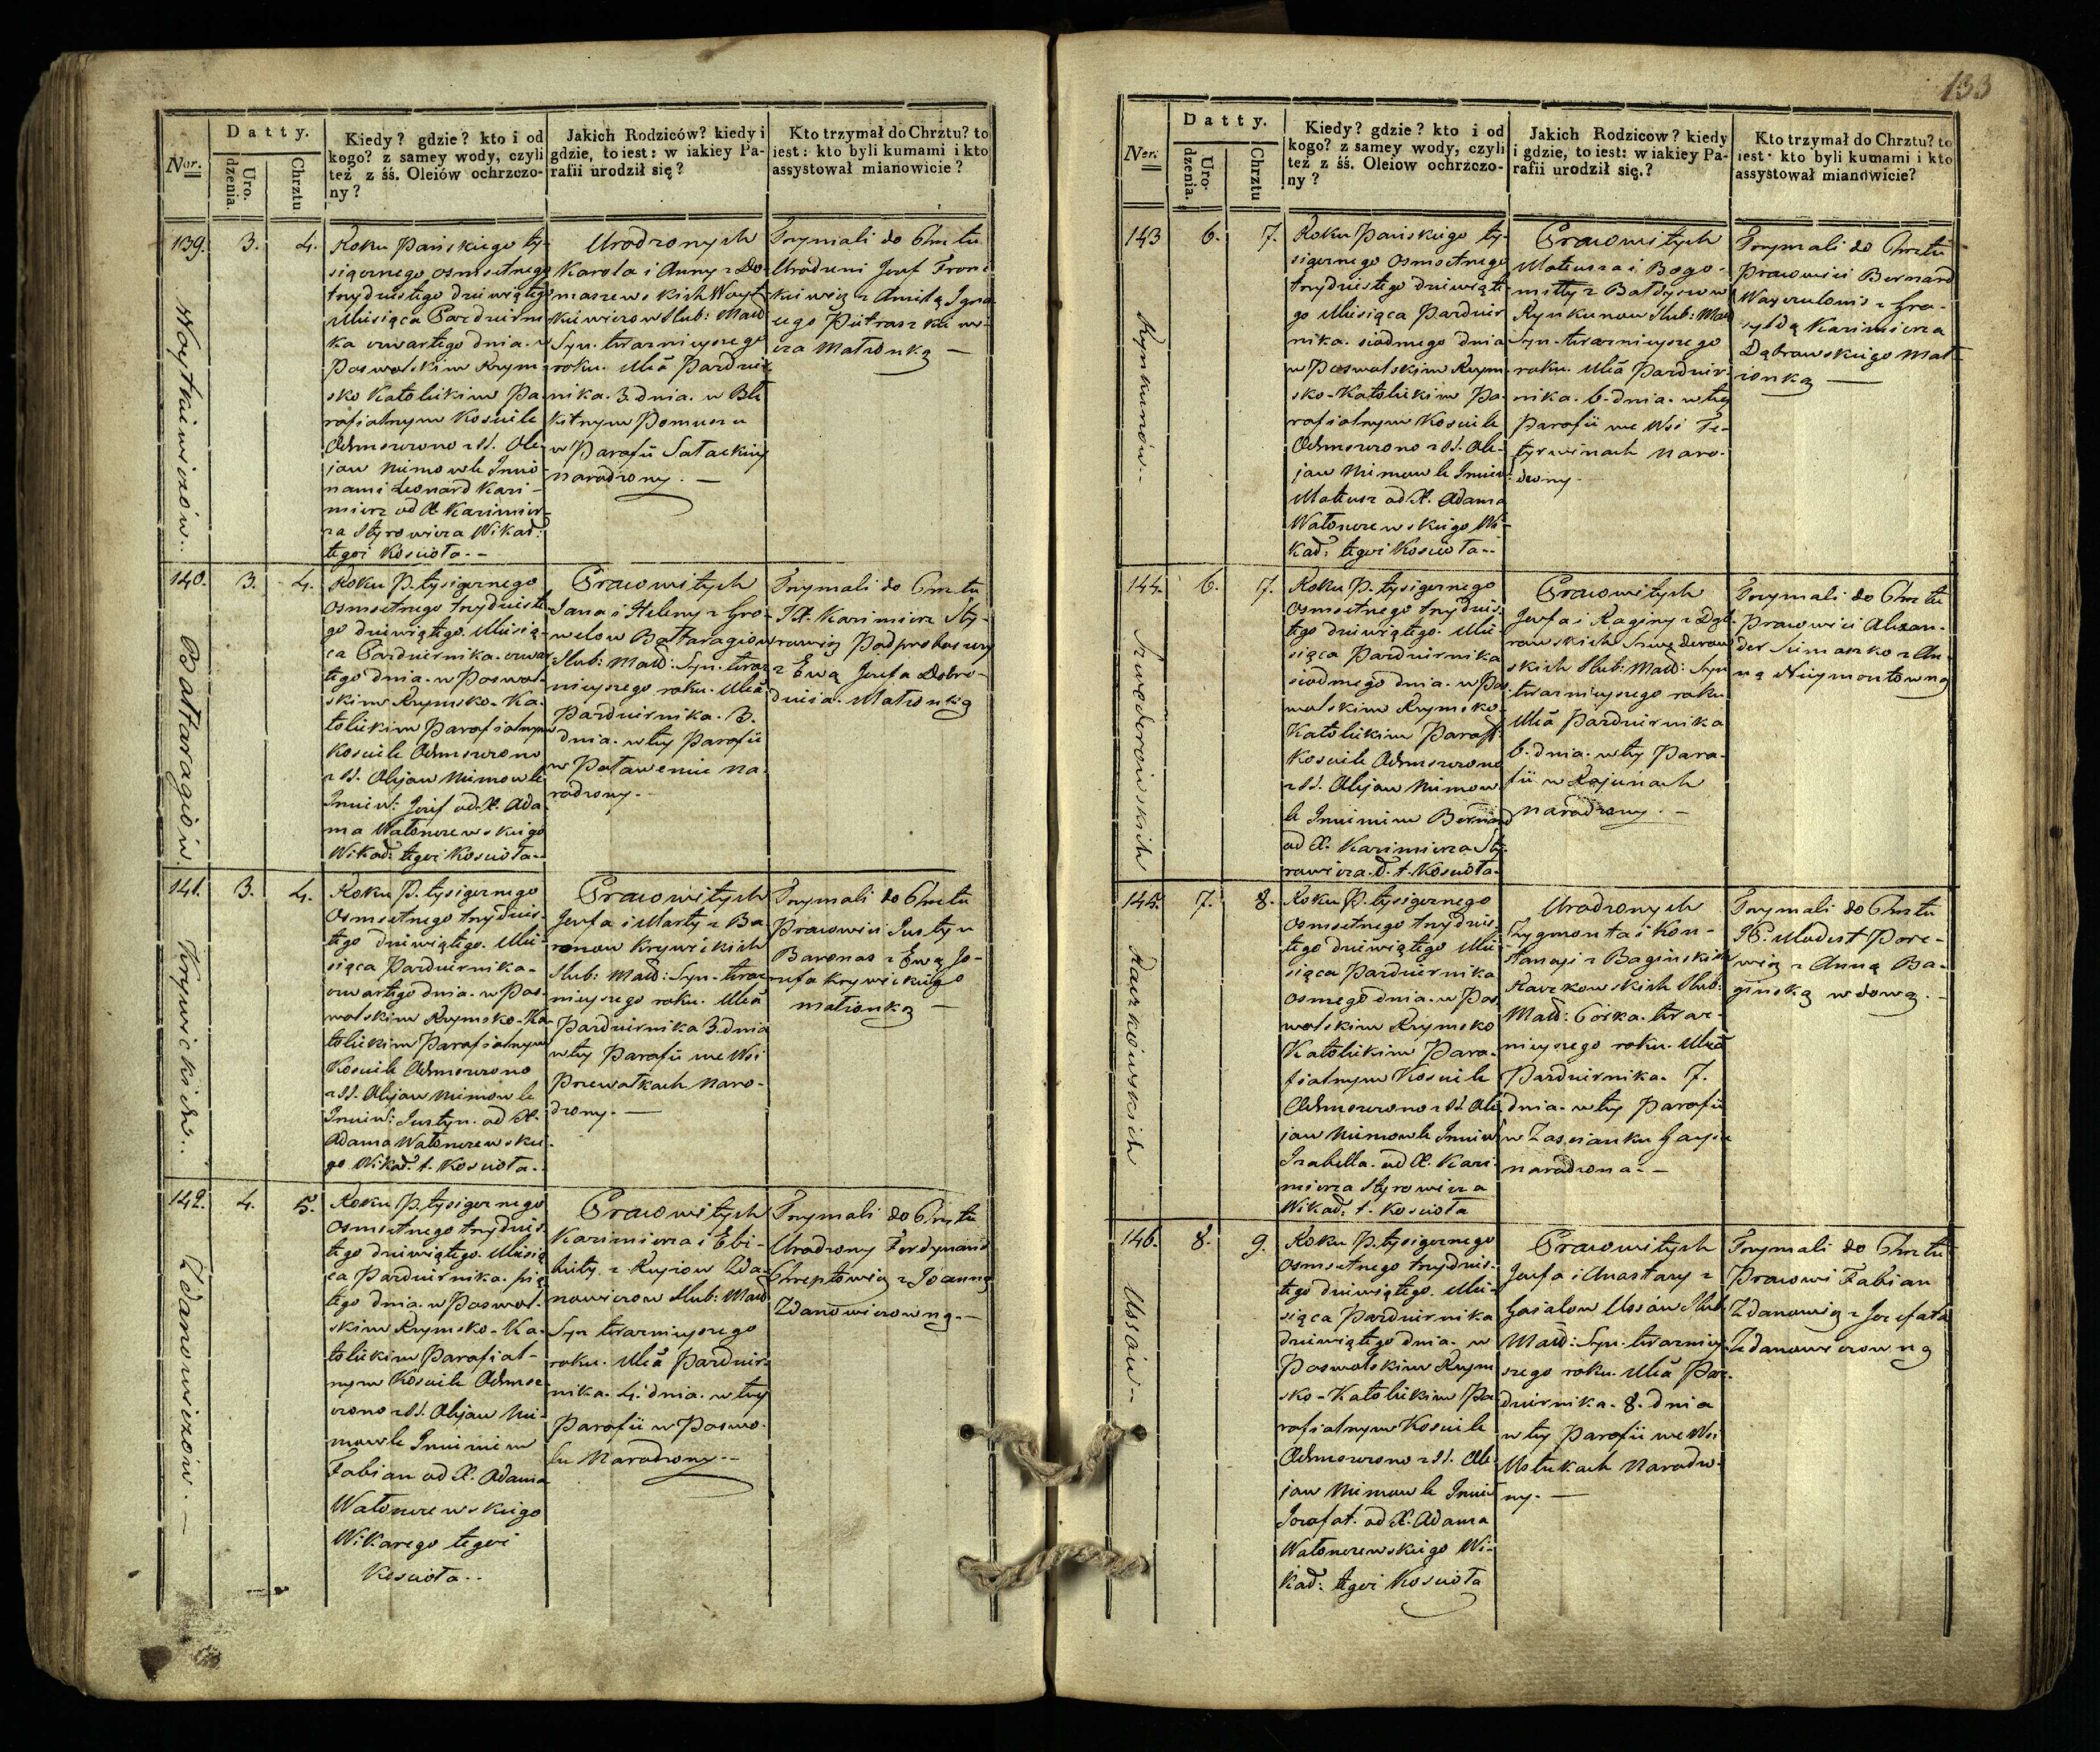 Ner.
Datty.
Uro-
dzenia.
Chrztu
Kiedy? gdzie? kto i od
kogo? z samey wody, czyli
też z śś. Oleiów ochrzczo-
ny?
Jakich Rodziców? kiedy i
gdzie, to iest: w iakiey Pa-
rafii urodził się?
Kto trzymał do Chrztu? to
iest: kto byli kumami i kto
assystował mianowicie?
139.
3.
4.
Woytkiewiczów..
Roku Pańskiego ty-
siącznego osmsetnego
trzydziestego dziewiątego
Miesiąca Październi
ka czwartego dnia. w
Poswolskim Rzym-
sko Katolickim Pa-
rafialnym Kosciele
Ochrzczono z SS. Ole-
jow Niemowle Imio-
nami Leonard Kazi-
mierz od X. Kazimier-
za Styrowicza Wikar:
tegoż Koscioła.-
Urodzonych
Karola i Anny z Do-
maszewskich Woyt-
kiewiczow Slub: Małż
Syn. teraznieyszego
roku. Mca Paździer
nika. 3. dnia. w Błę
kitnym Pomuszu
w Parafii Sałackiey
narodzony. —
Trzymali do Chrztu
Urodzeni Jozef Fron
kiewicz z Anielą Igna
cego Pietraszkiewi-
cza Małżonką —
140.
3.
4.
Bałtaragiów.
Roku P. tysiącznego
Osmsetnego trzydzieste
go dziewiątego. Miesią-
ca Pazdziernika. czwar
tego dnia. w Poswol-
skim Rzymsko-Ka-
tolickim Parafialnym
Kosciele Ochrzczono
z SS. Olejow Niemowle
Imien: Jozef od. X. Ada
ma Watonczewskiego
Wikar: tegoż Kosciola..
Pracowitych
Jana i Heleny z Gro-
welow Bałtaragiow
Slub: Małż: Syn. teraz
nieyszego roku. Mca
Pazdziernika. 3.
dnia. w tey Parafii
w Poławenie na
rodzony.-
Trzymali do Chrztu
X. Kazimierz Sty-
rowicz Podproboszczy
z Ewą Jozefa Dobro-
dzieia. Małżonką
141.
3.
4.
Krywickich..
Roku P. tysiącznego
Osmsetnego trzydzies-
tego dziewiątego. Mie-
siąca Pazdziernika-
czwartego dnia. w Pos-
wolskim Rzymsko-Ka-
tolickim Parafialnym
Kosciele Ochrzczono
z SS. Olejow Niemowle
Imien: Justyn. od X.
Adama Watonczewskie-
go Wikar: t. Kosciola..
Pracowitych
Jozefa i Marty z Ba-
ronow Krywickich
Slub: Małż: Syn. teraz
nieyszego roku. Mca
Pazdziernika 3. dnia
w tey Parafii we Wsi
Przewałkach naro-
dzony. —
Trzymali do Chrztu
Pracowici Justyn
Baronas z Ewą Jo-
zefa Krywickiego
małżonką —
142.
4.
5.
Zdanowiczów.—
Roku P. tysiącznego
Osmsetnego trzydzies-
tego dziewiątego. Miesią
ca Pazdziernika. pią
tego dnia. w Poswol-
skim Rzymsko-Ka-
tolickim Parafial-
nym Kosciele Ochrz-
czono z SS. Olejow Nie-
mowle Imieniem
Fabian od X. Adama
Watonczewskiego
Wikarego tegoż
Kosciola..
Pracowitych
Kazimierza i Elż-
biety z Zda-
nowiczow Slub: Małż
Syn teraznieyszego
roku. Mca Pazdzier-
nika. 4. dnia. w tey
Parafii w Poswo-
lu Narodzony.-
Trzymali do Chrztu
Urodzony Ferdynand
Chreptowicz z Joanną
Zdanowiczowną.—
133
Ner.
Datty.
Uro-
dzenia.
Chrztu
Kiedy? gdzie? kto i od
kogo? z samey wody, czyli
też z śś. Oleiow ochrzczo-
ny?
Jakich Rodzicow? kiedy
i gdzie, to iest: w iakiey Pa-
rafii urodził się.?
Kto trzymał do Chrztu? to
iest: kto byli kumami i kto
assystował mianowicie?
143
6.
7.
Rynkunów..
Roku Pańskiego ty-
siącznego Osmsetnego
trzydziestego dziewiąte
go Miesiąca Pazdzier
nika. siodmego dnia
w Poswolskim Rzym-
sko-Katolickim Pa-
rafialnym Kosciele
Ochrzczono z SS. Ole-
jow Niemowle Imien:
Mateusz od X. Adama
Watonczewskiego Wi-
kar: tegoż Kosciola..
Pracowitych
Mateusza i Bogo-
miły z Bałdysow
Rynkunow Slub: Małż
Syn. teraznieyszego
roku. Mca Pazdzier-
nika. 6. dnia. w tey
Parafii we Wsi Te-
tyrwinach naro-
dzony.
Trzymali do Chrztu
Pracowici Bernard
z Gra-
syldą Kazimierza
Dąbrowskiego Mał-
żonką —
144.
6.
7.
Szwęderowskich
Roku P. tysiącznego
Osmsetnego trzydzies-
tego dziewiątego. Mie-
siąca Pazdziernika
siodmego dnia. w Pos-
wolskim Rzymsko-
Katolickim Paraf:
Kosciele Ochrzczono
z SS. Olejow Niemow-
le Imieniem Bernard
od X. Kazimierza Sty-
rowicza. W. t. Kosciola.
Pracowitych
Jozefa i Raginy z Dąb-
rowskich Szwęderow
skich Slub: Małż: Syn
teraznieyszego roku
Mca Pazdziernika
6. dnia. w tey Para-
fii w Rajunach
narodzony. —
Trzymali do Chrztu
Pracowici Alexan-
der Simaszko z An-
ną Neymontowną
145.
7.
8.
Raczkówskich
Roku P. tysiącznego
Osmsetnego trzydzies-
tego dziewiątego Mie-
siąca Pazdziernika
Osmego dnia. w Pos
wolskim Rzymsko
Katolickim Para-
fialnym Kosciele
Ochrzczono z SS. Ole
jow Niemowle Imien:
Izabella. od X. Kazi-
mierza Styrowicza
Wikar. t. Kosciola
Urodzonych
Zygmonta i Kon-
stancyi z Baginskich
Raczkowskich Slub:
Małż: Córka. teraz-
nieyszego roku. Mca
Pazdziernika. 7.
dnia. w tey Parafii
w Zascianku
narodzona.—
Trzymali do Chrztu
JP. Modest Pore-
wicz z Anną Ba-
ginską wdową.-
146.
8.
9.
Ussów..
Roku P. tysiącznego
Osmsetnego trzydzies-
tego dziewiątego. Mie-
siąca Pazdziernika
dziewiątego dnia. w
Poswolskim Rzym
sko-Katolickim Pa
rafialnym Kosciele
Ochrzczono z SS. Ole-
jow Niemowle Imien
Jozafat. od X. Adama
Watonczewskiego Wi-
kar: tegoż Kosciola
Pracowitych
Jozefa i Anastazy z
Gasalow Ussów Slub.
Małż: Syn. terazniey-
szego roku. Mca Paz-
dziernika. 8. dnia
w tey Parafii we Wsi
Ustukach Narodzo-
ny. —
Trzymali do Chrztu
Pracowi Fabian
Zdanowicz z Jozefatą
Zdanowiczowną